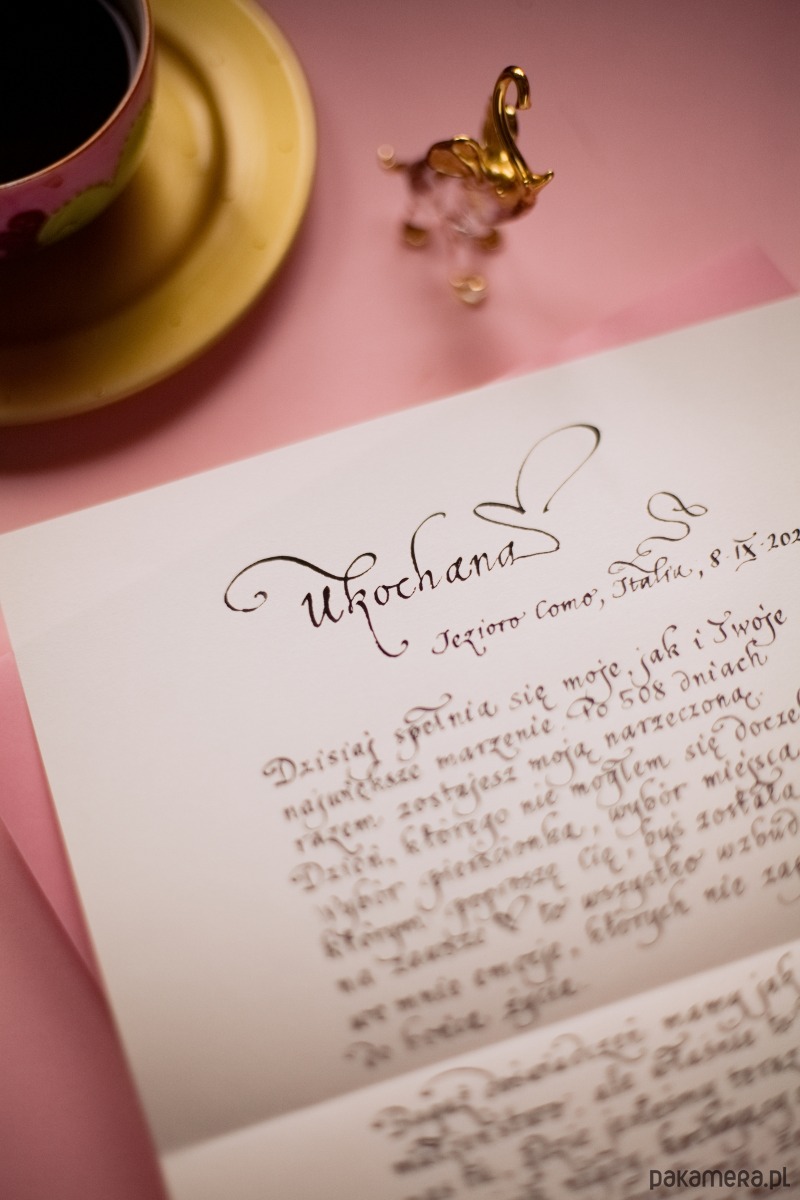 Ukochana
Jezioro Como, Italia, 8.IX.202
Dzisiaj spełnia się moje, jak i Twoje
największe marzenie. Po 508 dniach
razem zostajesz moją narzeczoną.
Dzień, którego nie mogłem się docze
Wybór pierścionka, wybór miejsca
którym poproszę Cię, byś została
na zawsze to wszystko wzbud
we mnie emocje, których nie zap
do końca życia.
doświadczeń mamy jak
ale właśnie
jesteśmy teraz
pakamera.pl